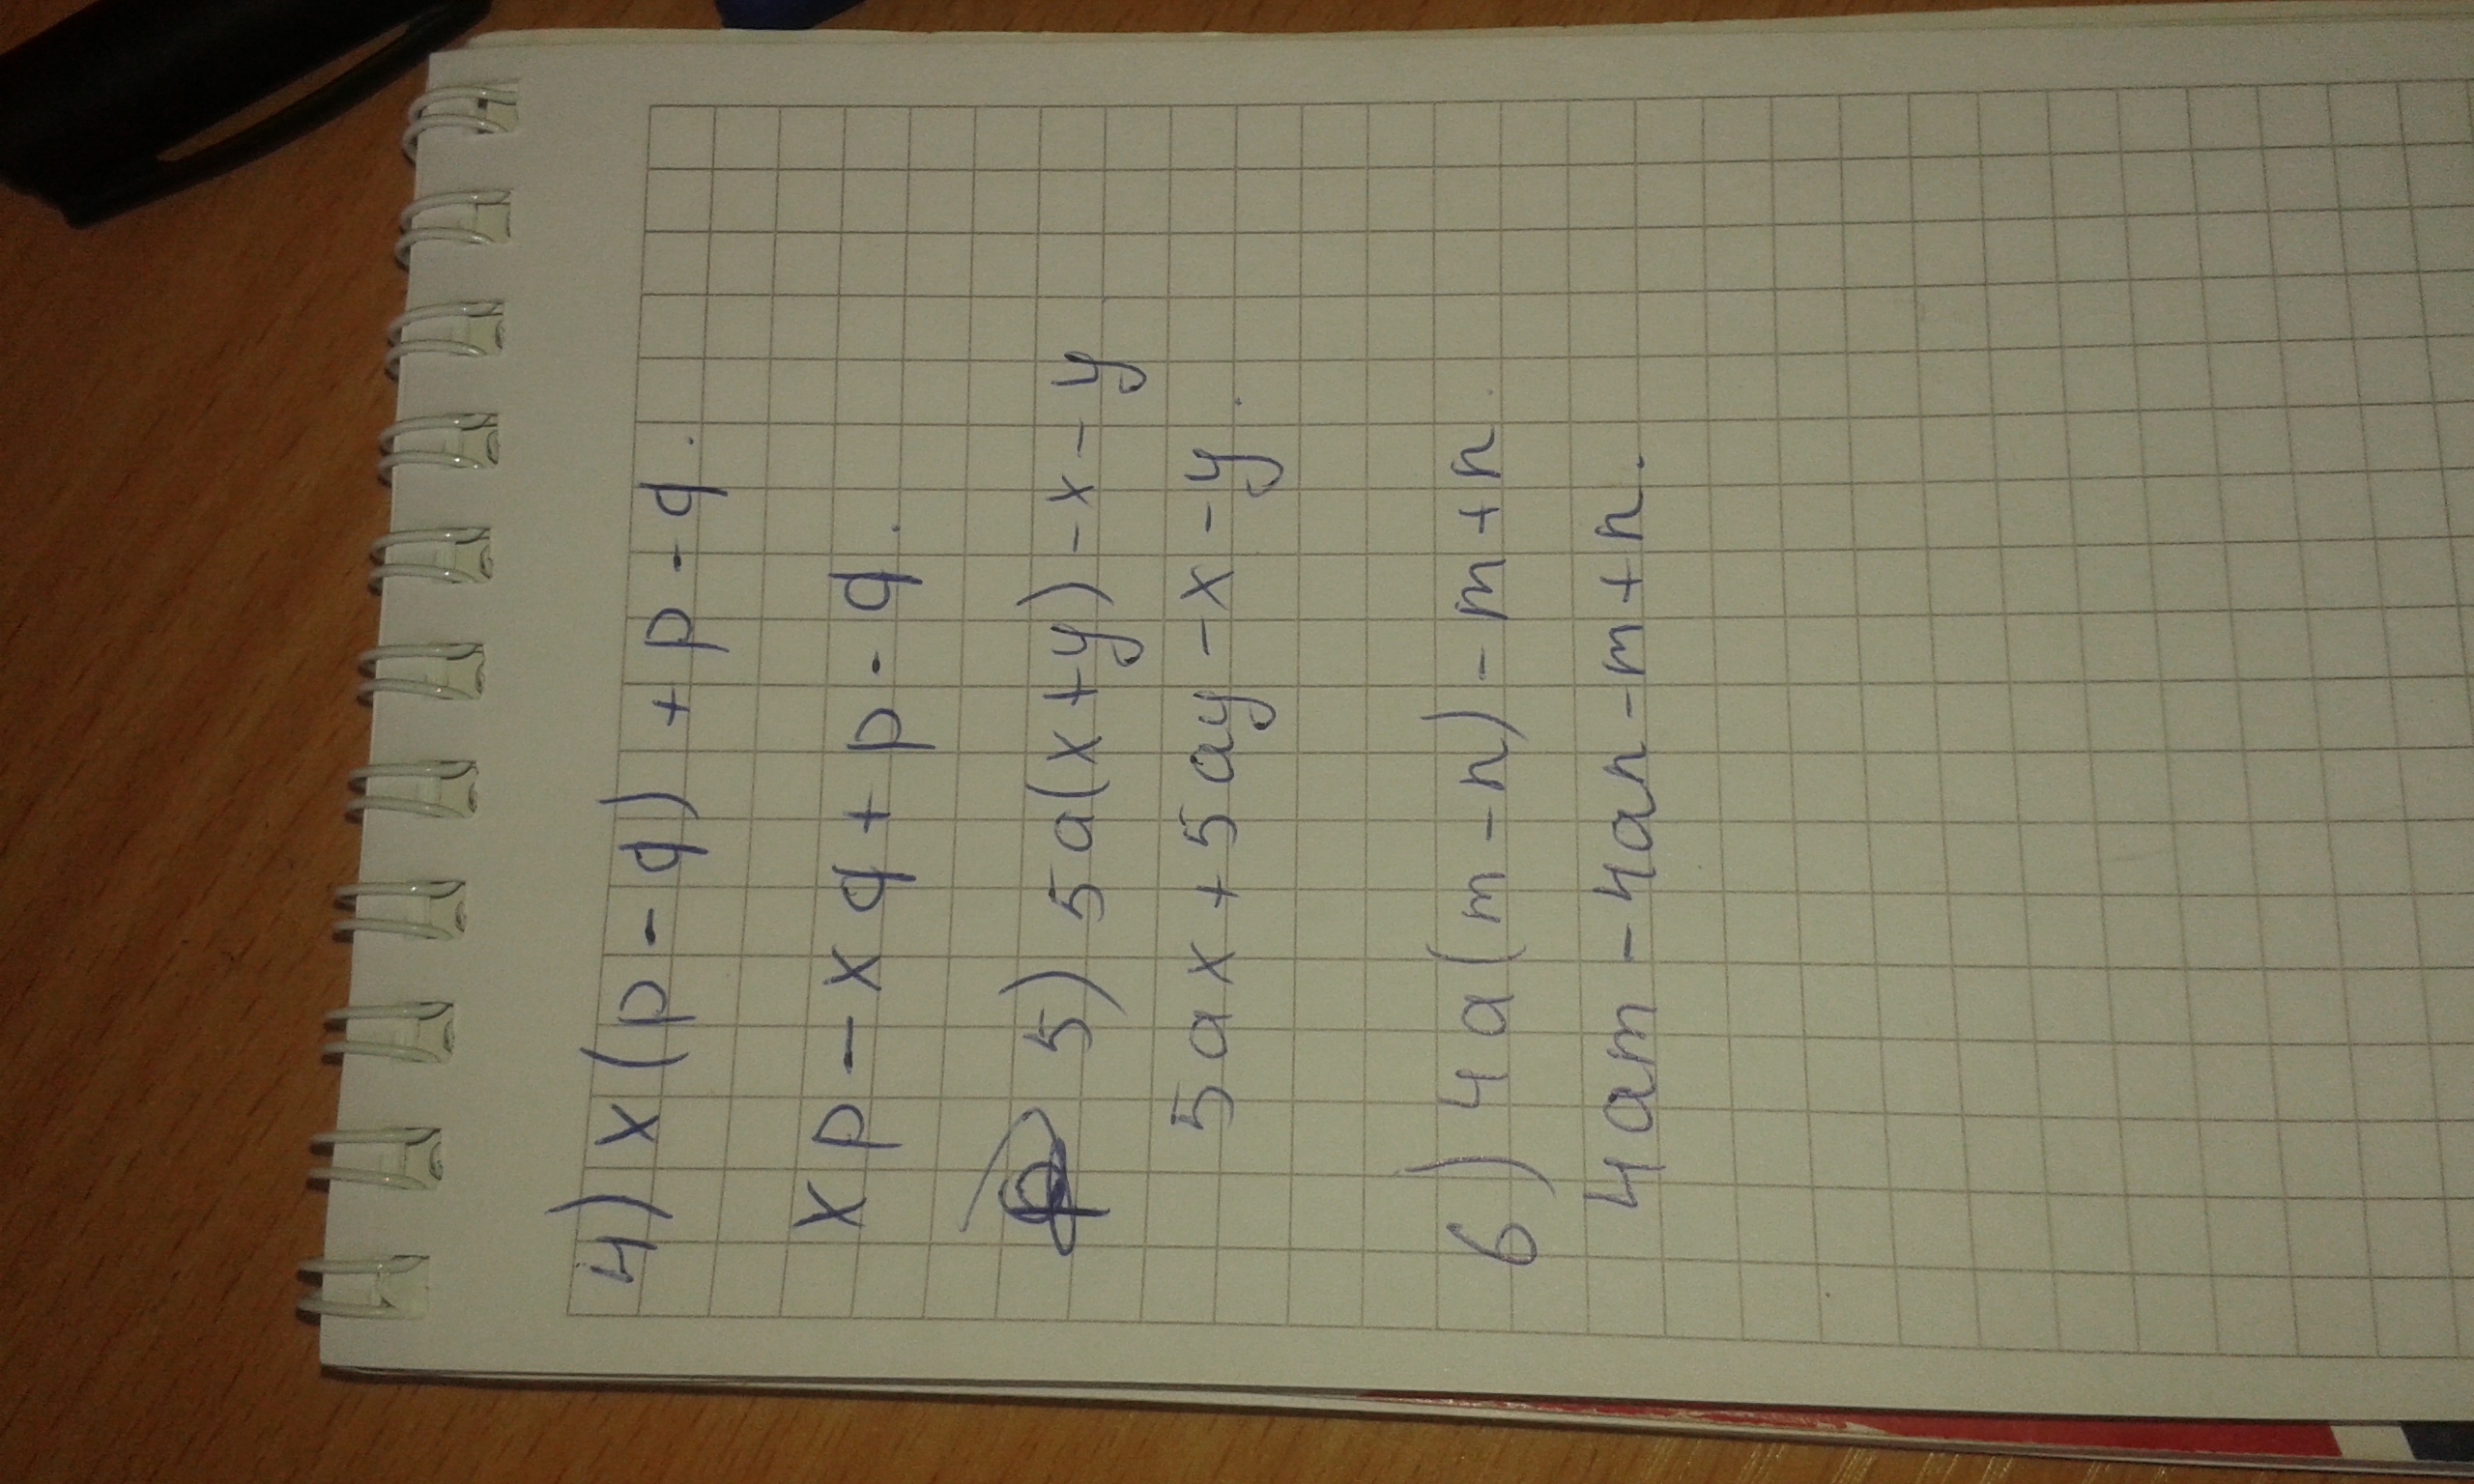 4) x(p-q)+p-q.
xp-xq+p-q.
5) 5a(x+y)-x-y
5ax+5ay-x-y.
6) 4a(m-n)-m+n.
4am-4an-m+n.